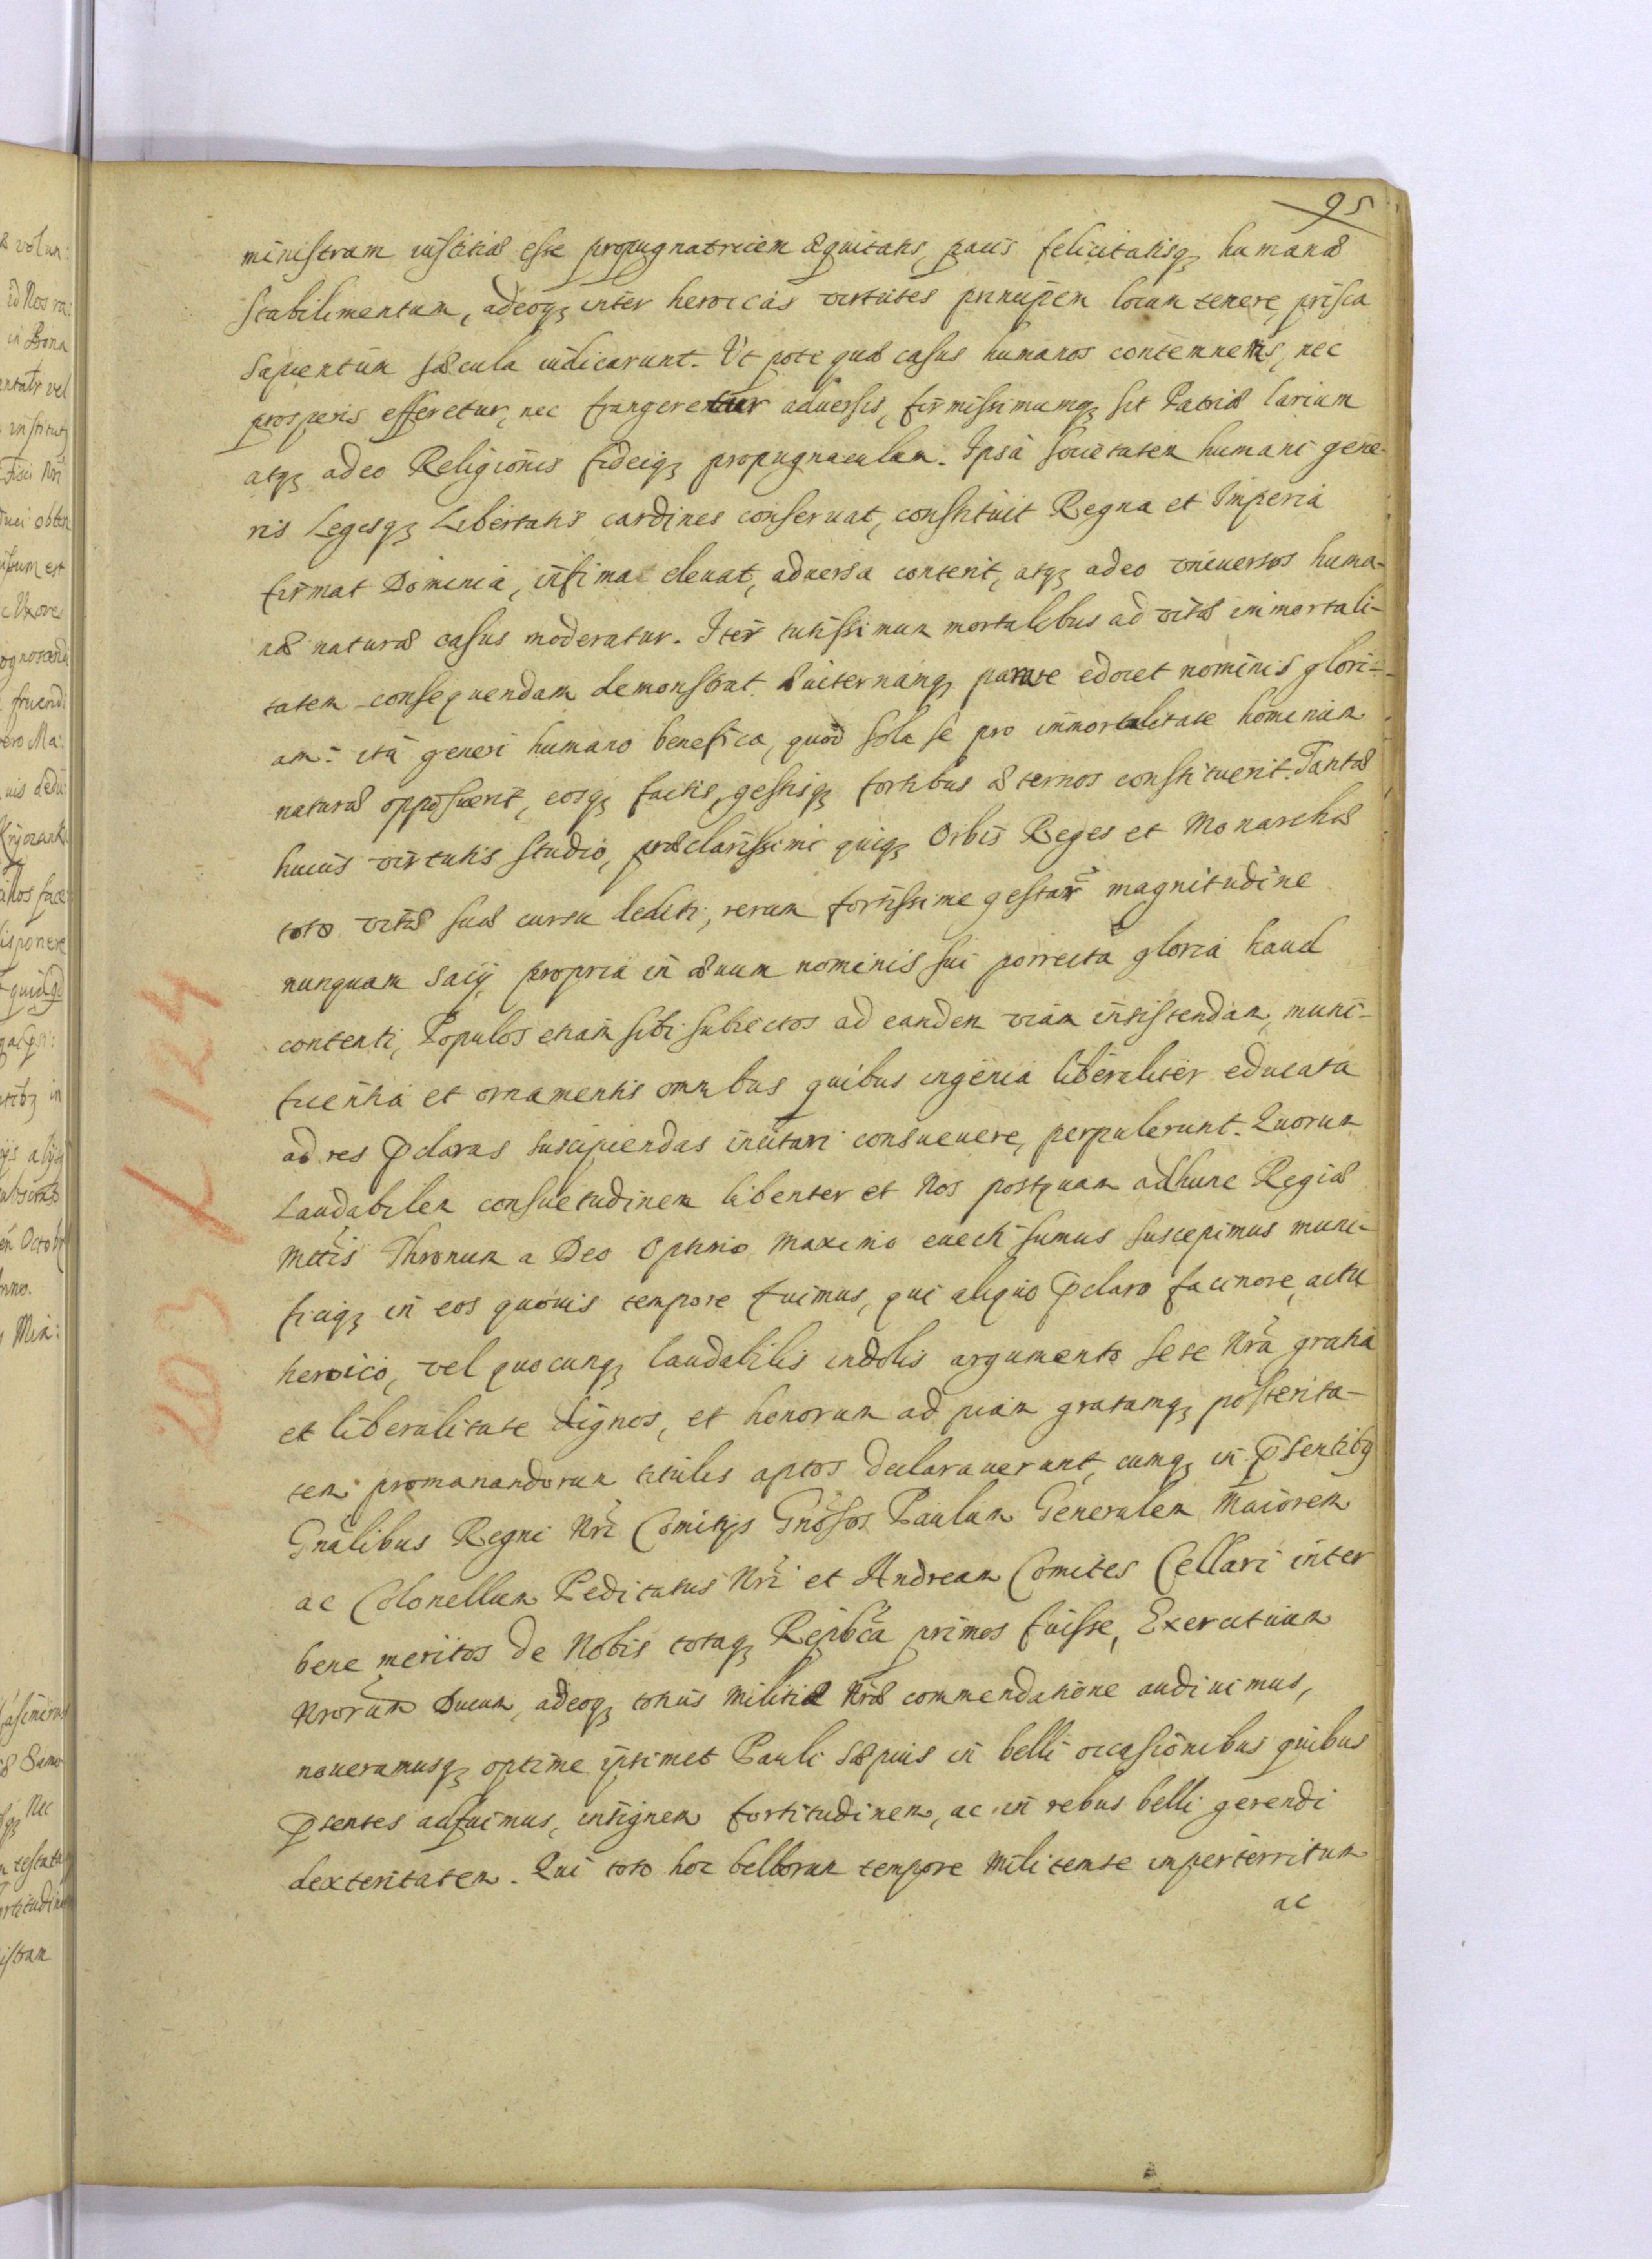 95
ministram iustitiæ esse propugnatricem æquitatis, pacis felicitatisq3 humanæ
stabilimentum, adeoq3 inter heroicas virtutes principem locum tenere, prisca
sapientum sæcula iudicarunt. Ut pote quæ casus humanos contemnens, nec
prosperis efferetur, nec frangeretur aduersis, firmissimumq3 sit Patriæ larium
atq3 adeo Religionis fideiq3 propugnaculum. Ipsa societatem humani gene-
ris Legesq3 Libertatis cardines conseruat, constituit Regna et Imperia
firmat Dominia, infima eleuat, aduersa conterit, atq3 adeo vniuersos huma-
næ naturæ casus moderatur. Iter tutissimum mortalibus ad vitæ immortali-
tatem consequendam demonstrat æuiternamq3 parare edocet nominis glori-
am: ita generi humano benefica, quod sola se pro immortalitate hominum
naturæ opposuerit, eosq3 factis, gestisq3 fortibus æternos constituerit. Tantæ
huius virtutis studio, præclarissimi quiq3 Orbis Reges et Monarchæ
toto vitæ suæ cursu dediti, rerum fortissime gestar magnitudine
nunquam sacij propria in æuum nominis sui porrecta gloria haud
contenti, Populos etiam sibi subiectos ad eandem viam insistendam, muni-
ficentia et ornamentis omnibus quibus ingenia liberaliter educata
ad res pclaras suscipiendas incitari consueuere, perpulerunt. Quorum
Laudabilem consuetudinem libenter et Nos postquam ad hunc Regiæ
Mttis Thronum a Deo Optimo Maximo euecti sumus suscepimus muni-
ficiq3 in eos quouis tempore fuimus, qui aliquo pclaro facinore, actu
heroico, vel quocunq3 laudabilis indolis argumento sese Nra gratia
et liberalitate dignos, et honorum ad piam gratamq3 posterita-
tem promanandorum titulis aptos declarauerunt, cumq3 in psentib3
Gnalibus Regni Nri Comitijs Gnosos Paulum Generalem Maiorem
ac Colonellum Peditatus Nri et Andream Comites Cellari inter
bene meritos de Nobis totaq3 Repbca primos fuisse, Exercituum
Nrorum Ducum, adeoq3 totius Militiæ Nræ commendatione audiuimus,
noueramusq3 optime ipsimet Pauli sæpius in belli occasionibus quibus
psentes adfuimus, insignem fortitudinem, ac in rebus belli gerendi
dexteritatem. Qui toto hoc bellorum tempore Militem se imperterritum
ac
203 L 124